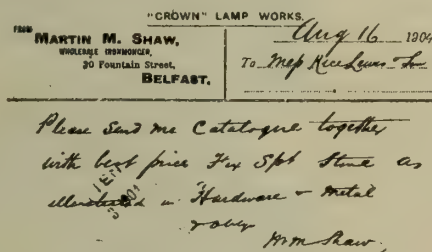 "CROWN" LAMP WORKS.
FROM
MARTIN M. SHAW,
WHOLESALE IRONMONGER,
30 Fountain Street,
BELFAST.
Aug 16 1904
To Mess Rice Lewis & Son
Please Send me Catalogue together
with best price for Spot Stone as
illustrated in "Hardware & Metal
M M Shaw.